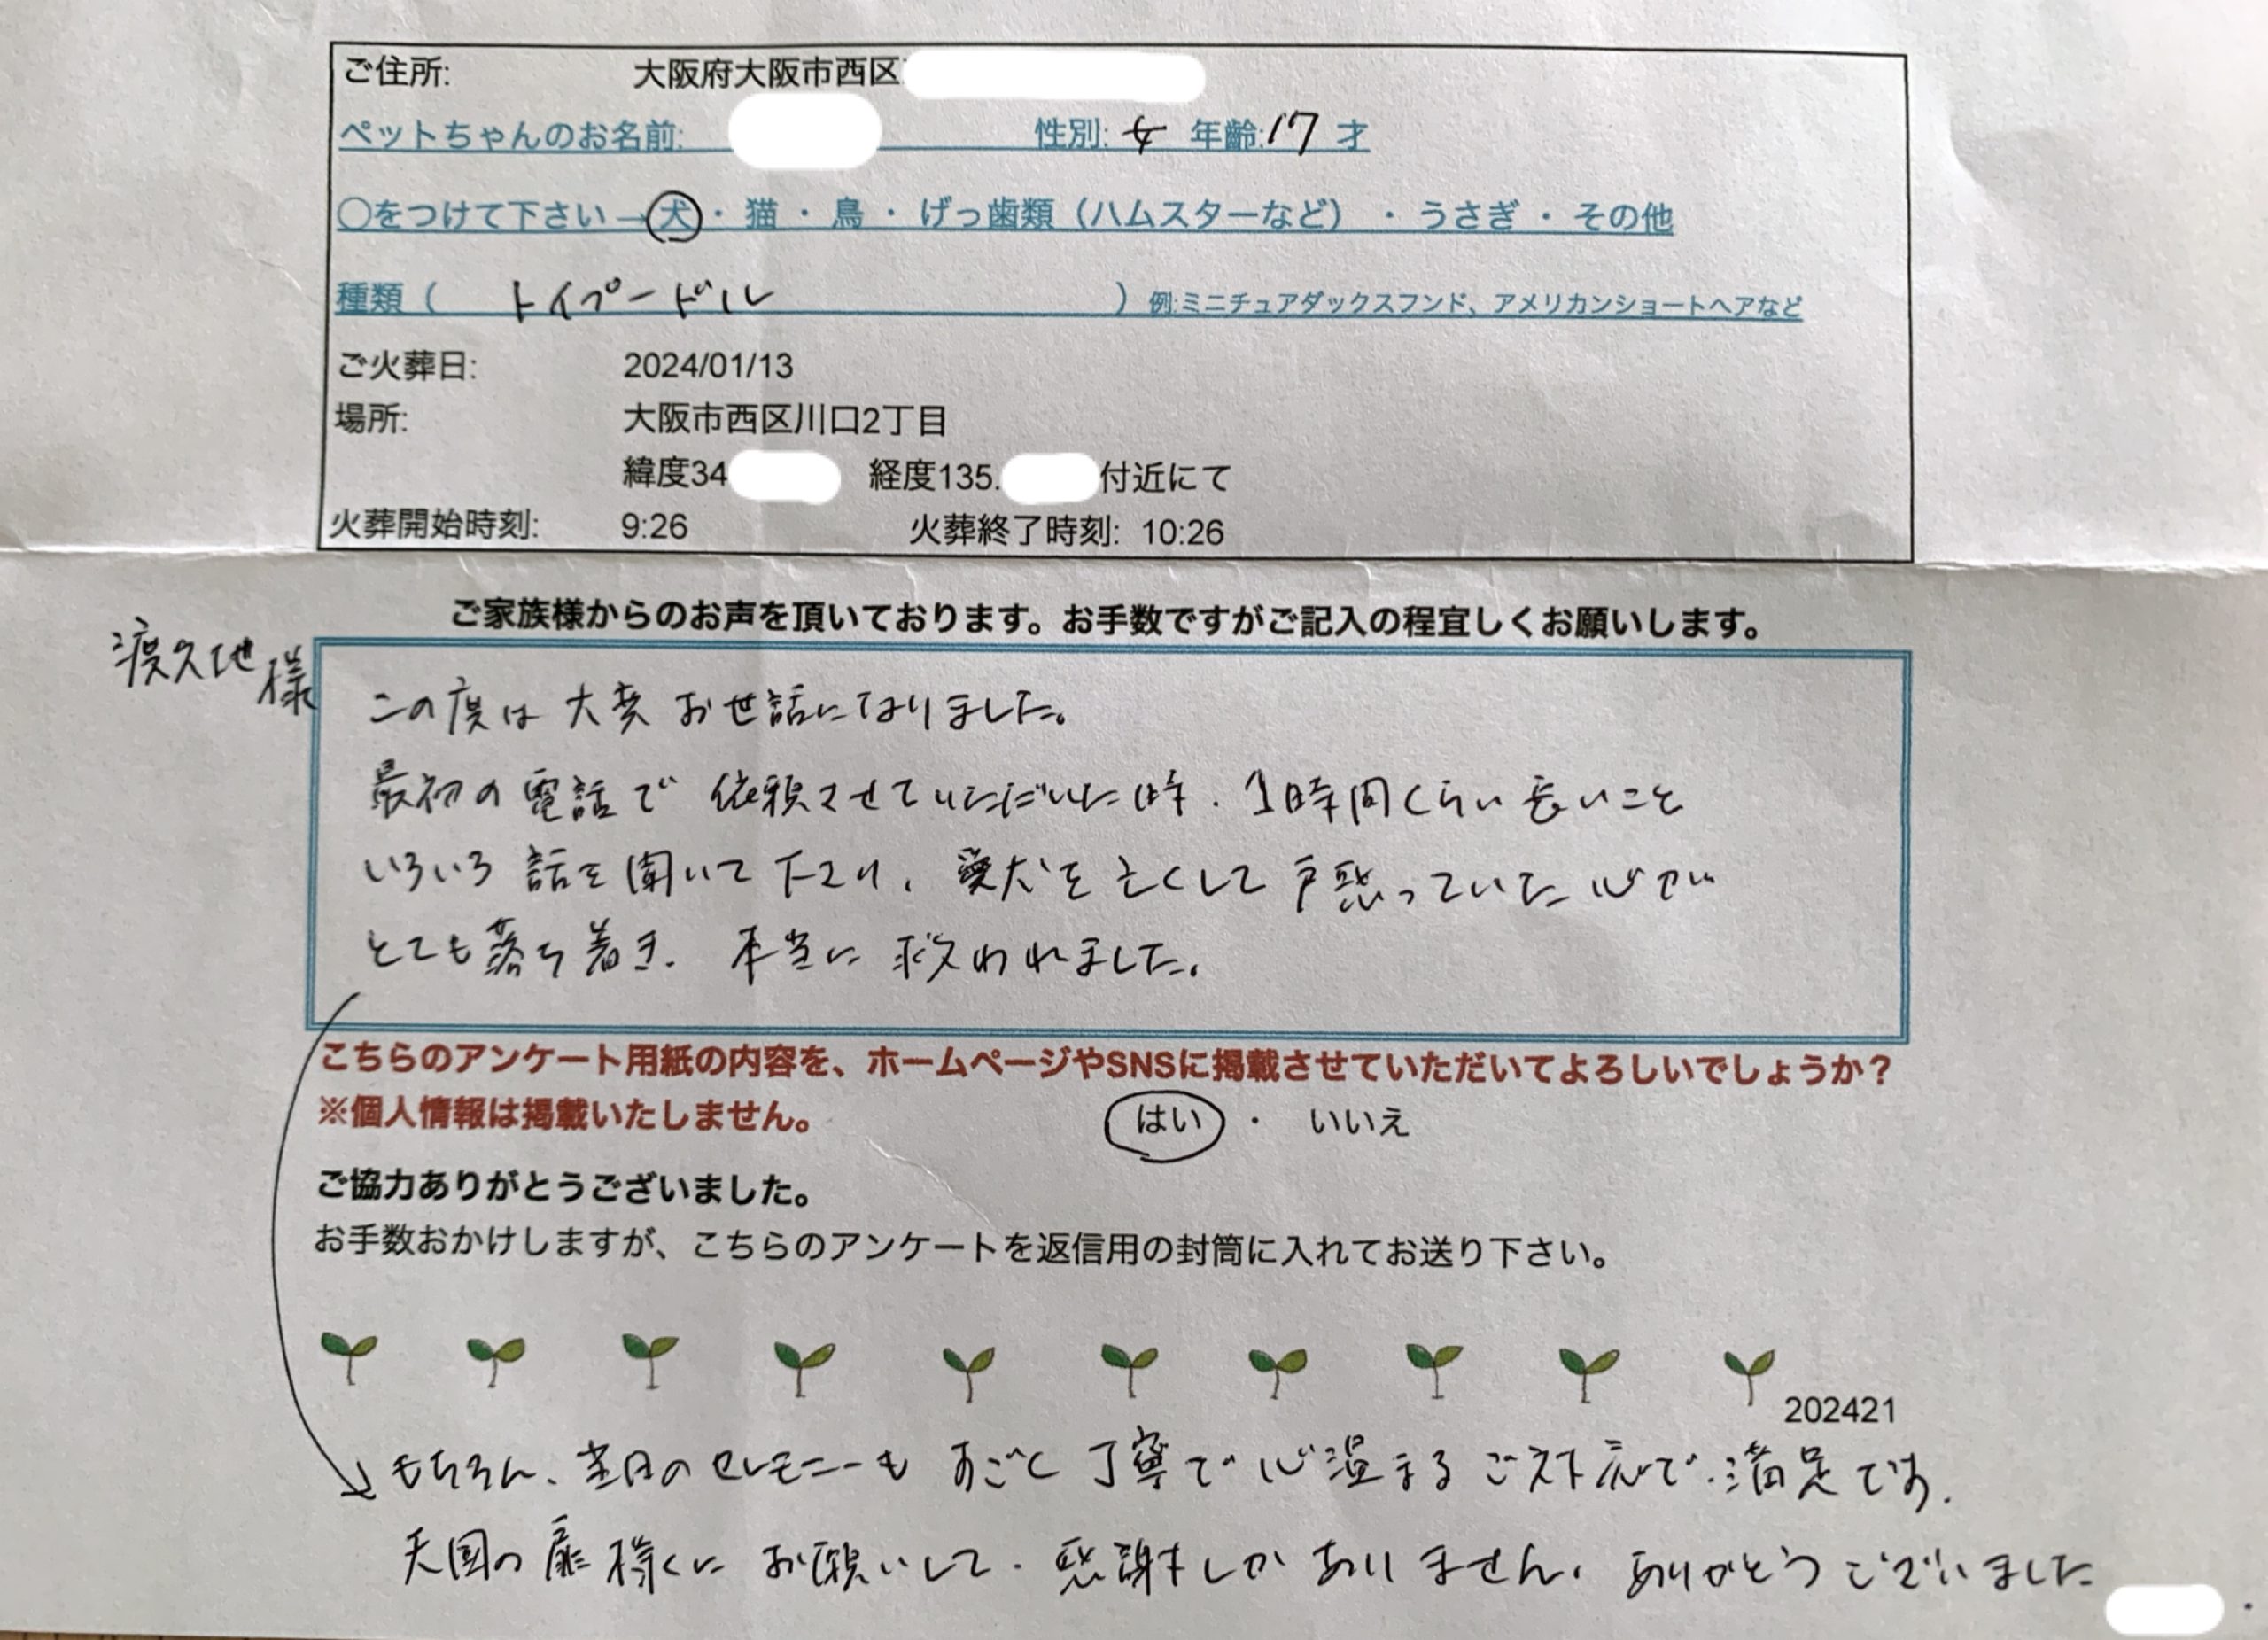 ご住所: 大阪府大阪市西区
ペットちゃんのお名前: 性別: 女 年齢: 17 才
○をつけて下さい→犬・猫・鳥・げっ歯類（ハムスターなど）・うさぎ・その他
種類（ トイプードル ）例:ミニチュアダックスフンド、アメリカンショートヘアなど
ご火葬日: 2024/01/13
場所: 大阪市西区川口2丁目
緯度34 経度135. 付近にて
火葬開始時刻: 9:26 火葬終了時刻: 10:26
ご家族様からのお声を頂いております。お手数ですがご記入の程宜しくお願いします。
渡久地様
この度は大変お世話になりました。
最初の電話で依頼させていただいた時、1時間くらい長いこと
いろいろ話を聞いて下さり、愛犬を亡くして戸惑っていた心が
とても落ち着き、本当に救われました。
こちらのアンケート用紙の内容を、ホームページやSNSに掲載させていただいてよろしいでしょうか？
※個人情報は掲載いたしません。 はい ・ いいえ
ご協力ありがとうございました。
お手数おかけしますが、こちらのアンケートを返信用の封筒に入れてお送り下さい。
202421
もちろん、当日のセレモニーもすごく丁寧で心温まるご対応で、満足です。
天国の扉様にお願いして、感謝しかありません。ありがとうございました